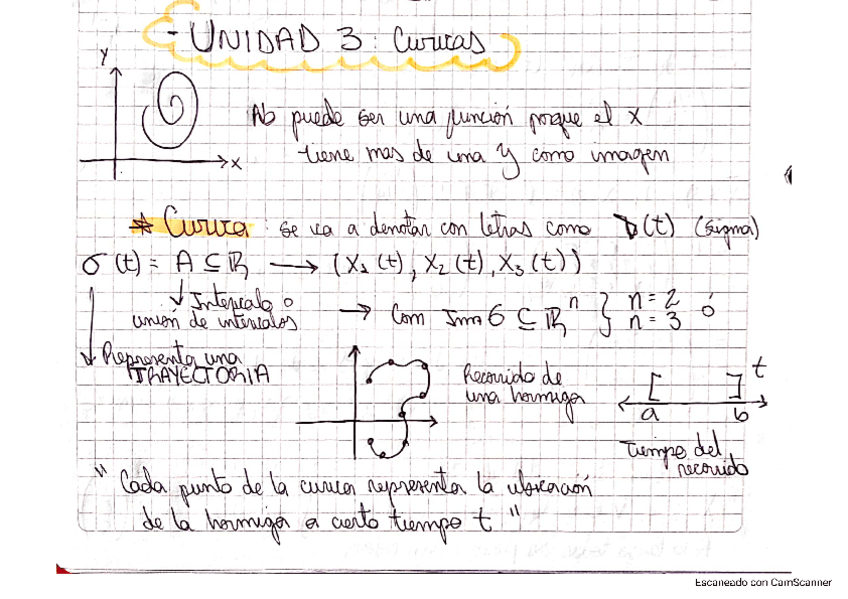 - UNIDAD 3: Curvas
y
No puede ser una función porque el x
x
tiene mas de una y como imagen
* Curva: se va a denotar con letras como σ(t) (sigma)
σ(t) = A ⊆ ℝ → (X₁(t), X₂(t), X₃(t))
↓ Intervalo o
unión de intervalos
→ Con Im σ ⊆ ℝⁿ } n = 2 ó
n = 3
↓ Representa una
TRAYECTORIA
Recorrido de
una hormiga
[ ] t
a b
Tiempo del
recorrido
"Cada punto de la curva representa la ubicación
de la hormiga a cierto tiempo t"
Escaneado con CamScanner